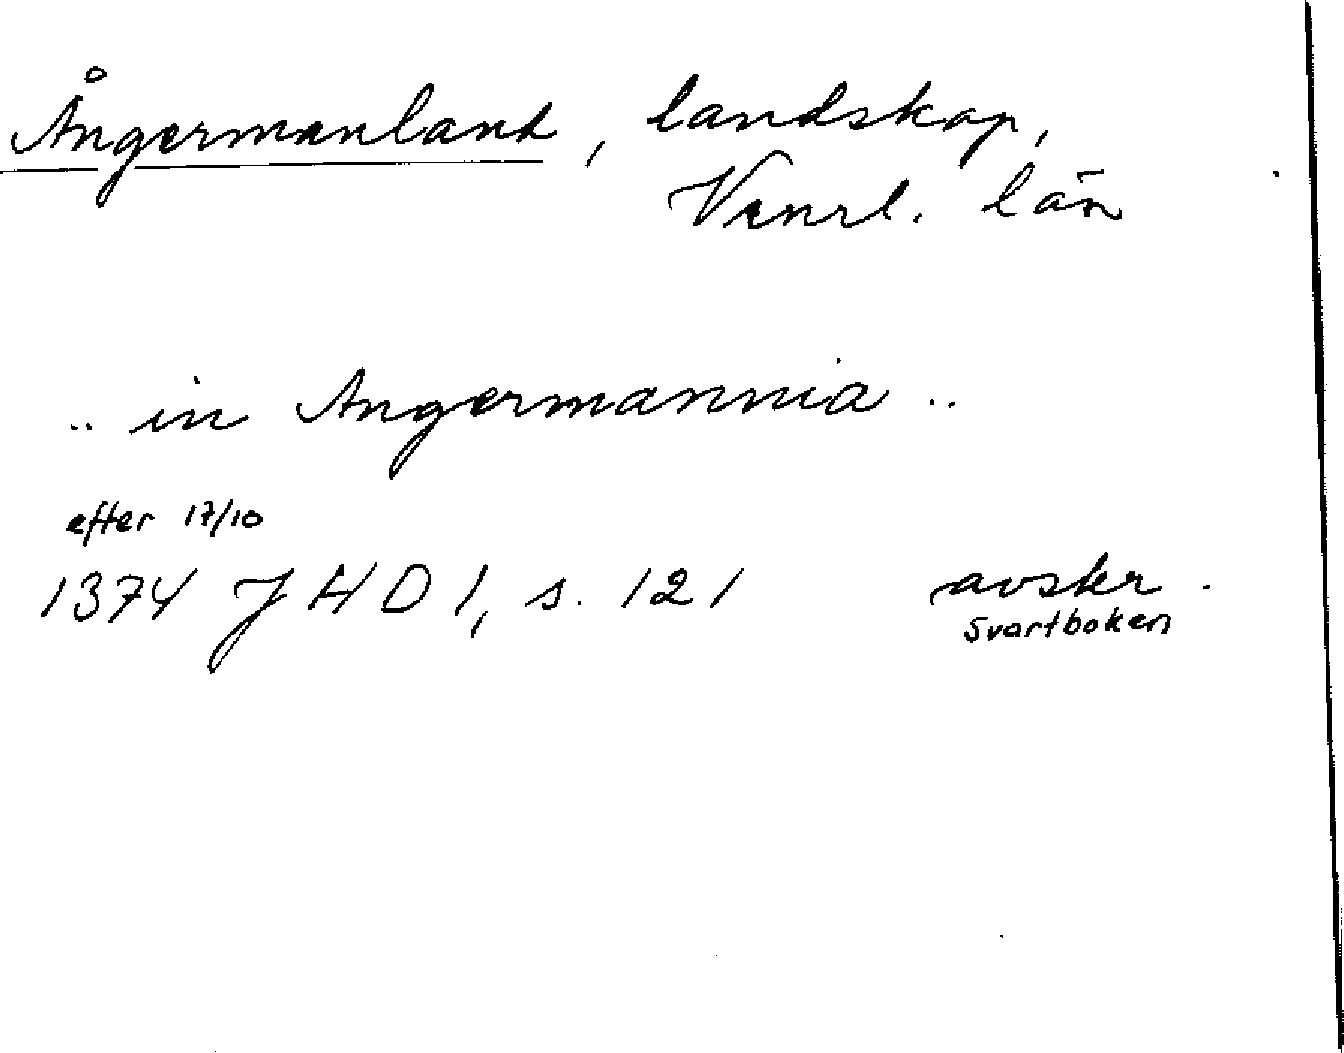 Ångermanland, landskap,
Vnrl. län
.. in Angermannia ..
efter 17/10
1374 JHD 1, s. 121 avskr.
Svartboken